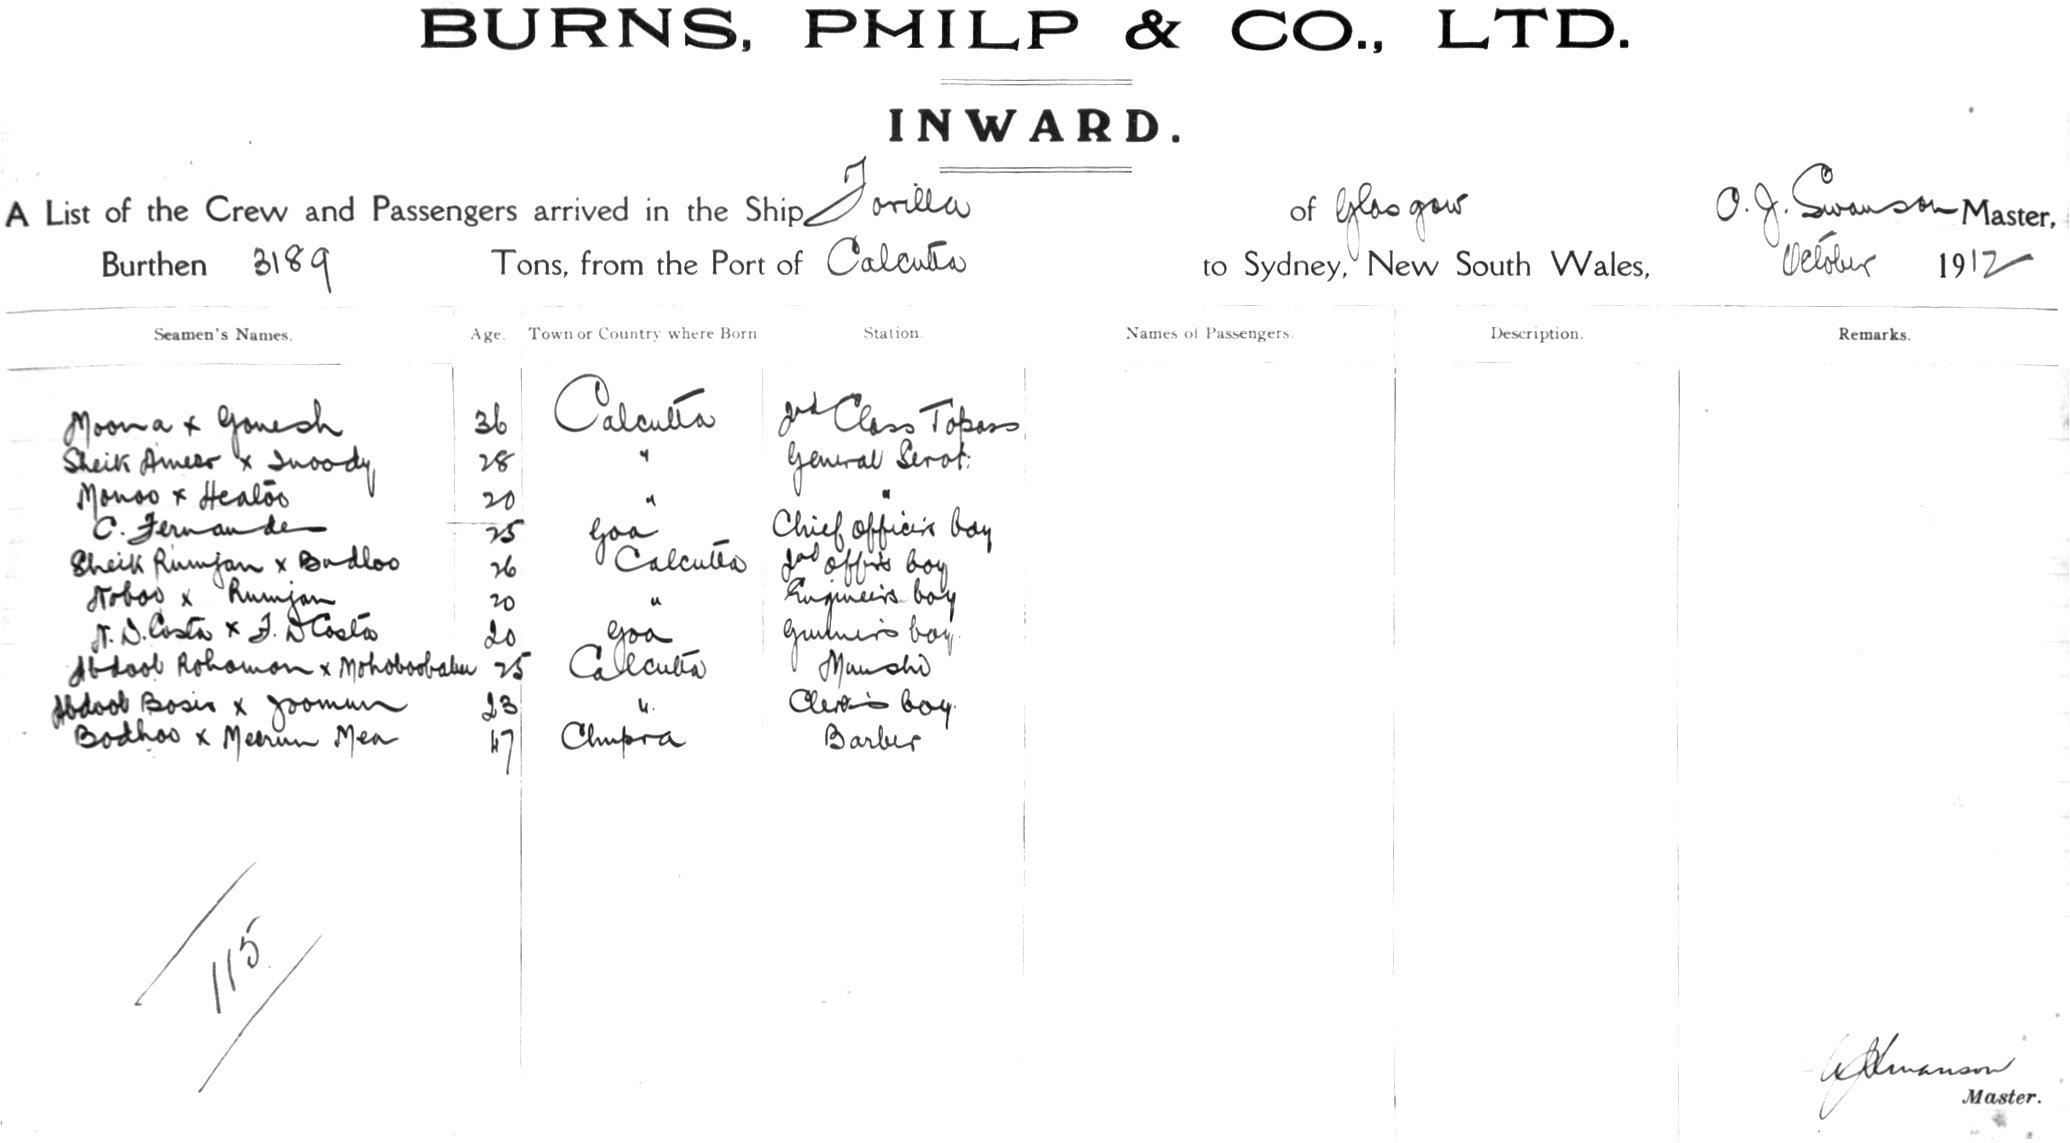 BURNS, PHILP & CO., LTD.
INWARD.
A List of the Crew and Passengers arrived in the Ship Torilla of Glasgow O. J. Swanson Master,
Burthen 3189 Tons, from the Port of Calcutta to Sydney, New South Wales, October 1912
Seamen's Names. Age. Town or Country where Born Station. Names of Passengers. Description. Remarks.
Moona x Gonesh 36 Calcutta 2nd Class Topass
Sheik Ameer x Inoody 28 " General Servt.
Monoo x Healoo 20 " "
C. Fernandes 25 Goa Chief officer's boy
Sheik Rumjan x Budloo 26 Calcutta 2nd offr's boy
Noboo x Rumjan 20 " Engineer's boy
N. D. Costa x F. D Costa 20 Goa Gunner's boy.
Abdool Rohoman x 25 Calcutta Munshi
Abdool Bosir x Joomun 23 " Clerk's boy.
Bodhoo x Meerun Mea 47 Chupra Barber
115
O J Swanson
Master.